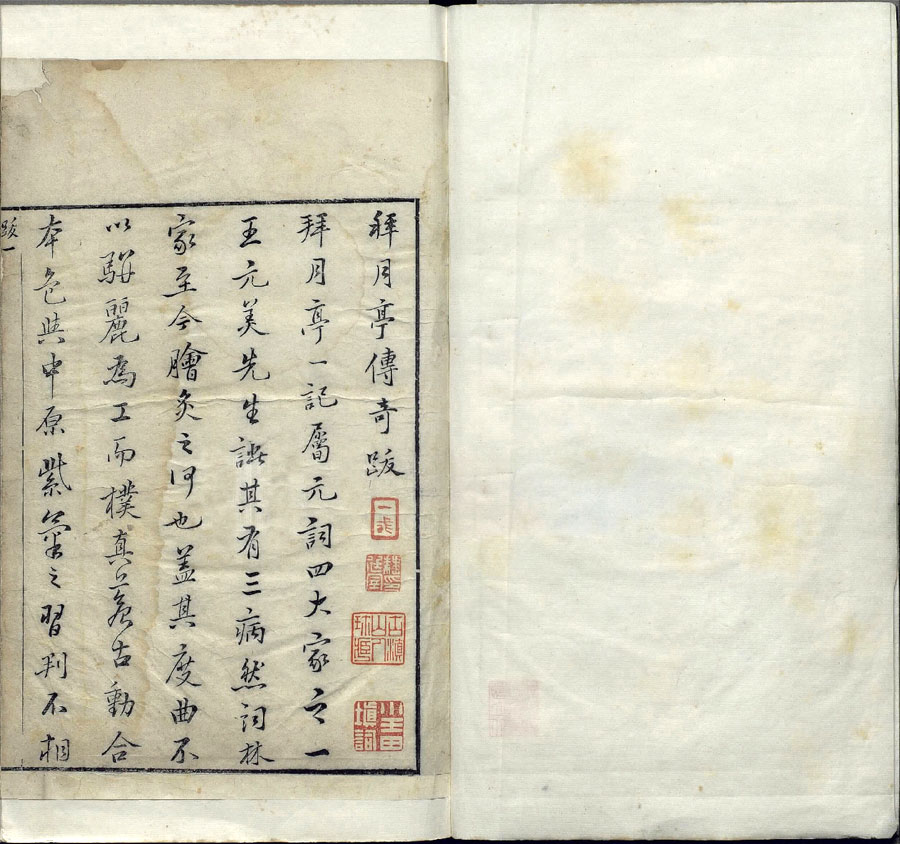 拜月亭傳奇跋
拜月亭一記屬元詞四大家之一
王元美先生譏其有三病然詞林
家至今膾炙之何也蓋其度曲不
以駢麗為工而樸真蒼古動合
本色與中原紫氣之習判不相
跋一